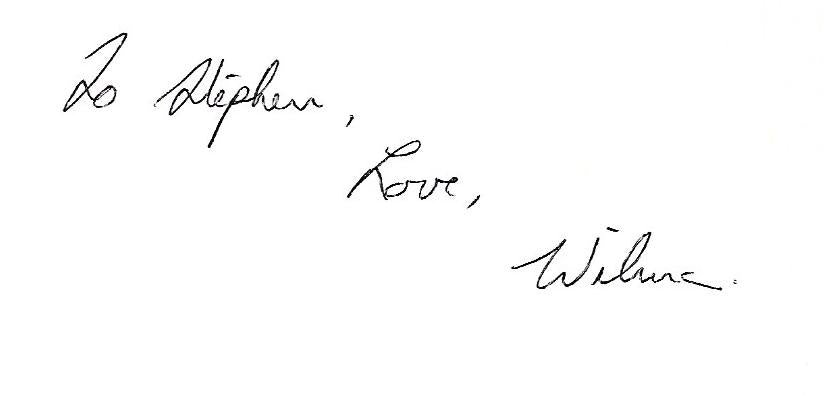 To Stephen,
Love,
Wilma.